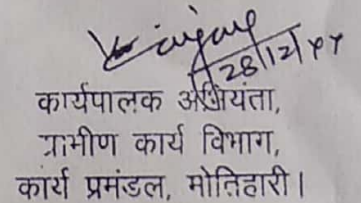 28/12/
कार्यपालक अभियंता,
ग्रामीण कार्य विभाग,
कार्य प्रमंडल, मोतिहारी।